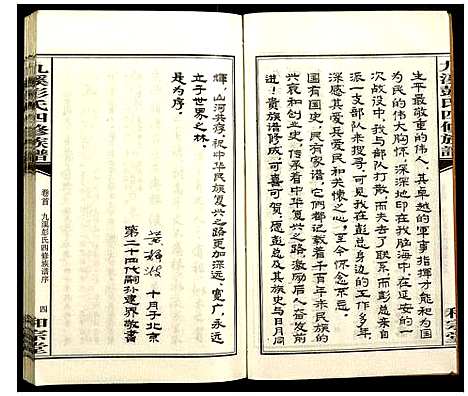 九溪彭氏四修族譜
生平最敬重的伟人，其卓越的軍事指挥才能和为国
为民的伟大胸怀，深深地印在我脑海中，在延安的一
次战役中，我与部队打散，而失去了联系，而彭总亲自
派一支部队来搜寻，可见我在彭总身边的工作，我
深感其爱兵爱民和关懷之心，至今怀念不忘。
国有国史，民有家谱，它们都记载着千百年来民族的
兴衰和创业史，传承着中华复兴之路，激励后人奋发有
志！贵族谱修成，可喜可贺，愿彭总及其族史与日月同
和宗堂
輝，山河共存，祝中华民族复兴之路更加深远，宽广，永远
立于世界之林。
是为序。
十月于北京
第二十四代嗣孙建界敬書
九溪彭氏四修族譜
卷首
九溪彭氏四修族谱序
四
和宗堂